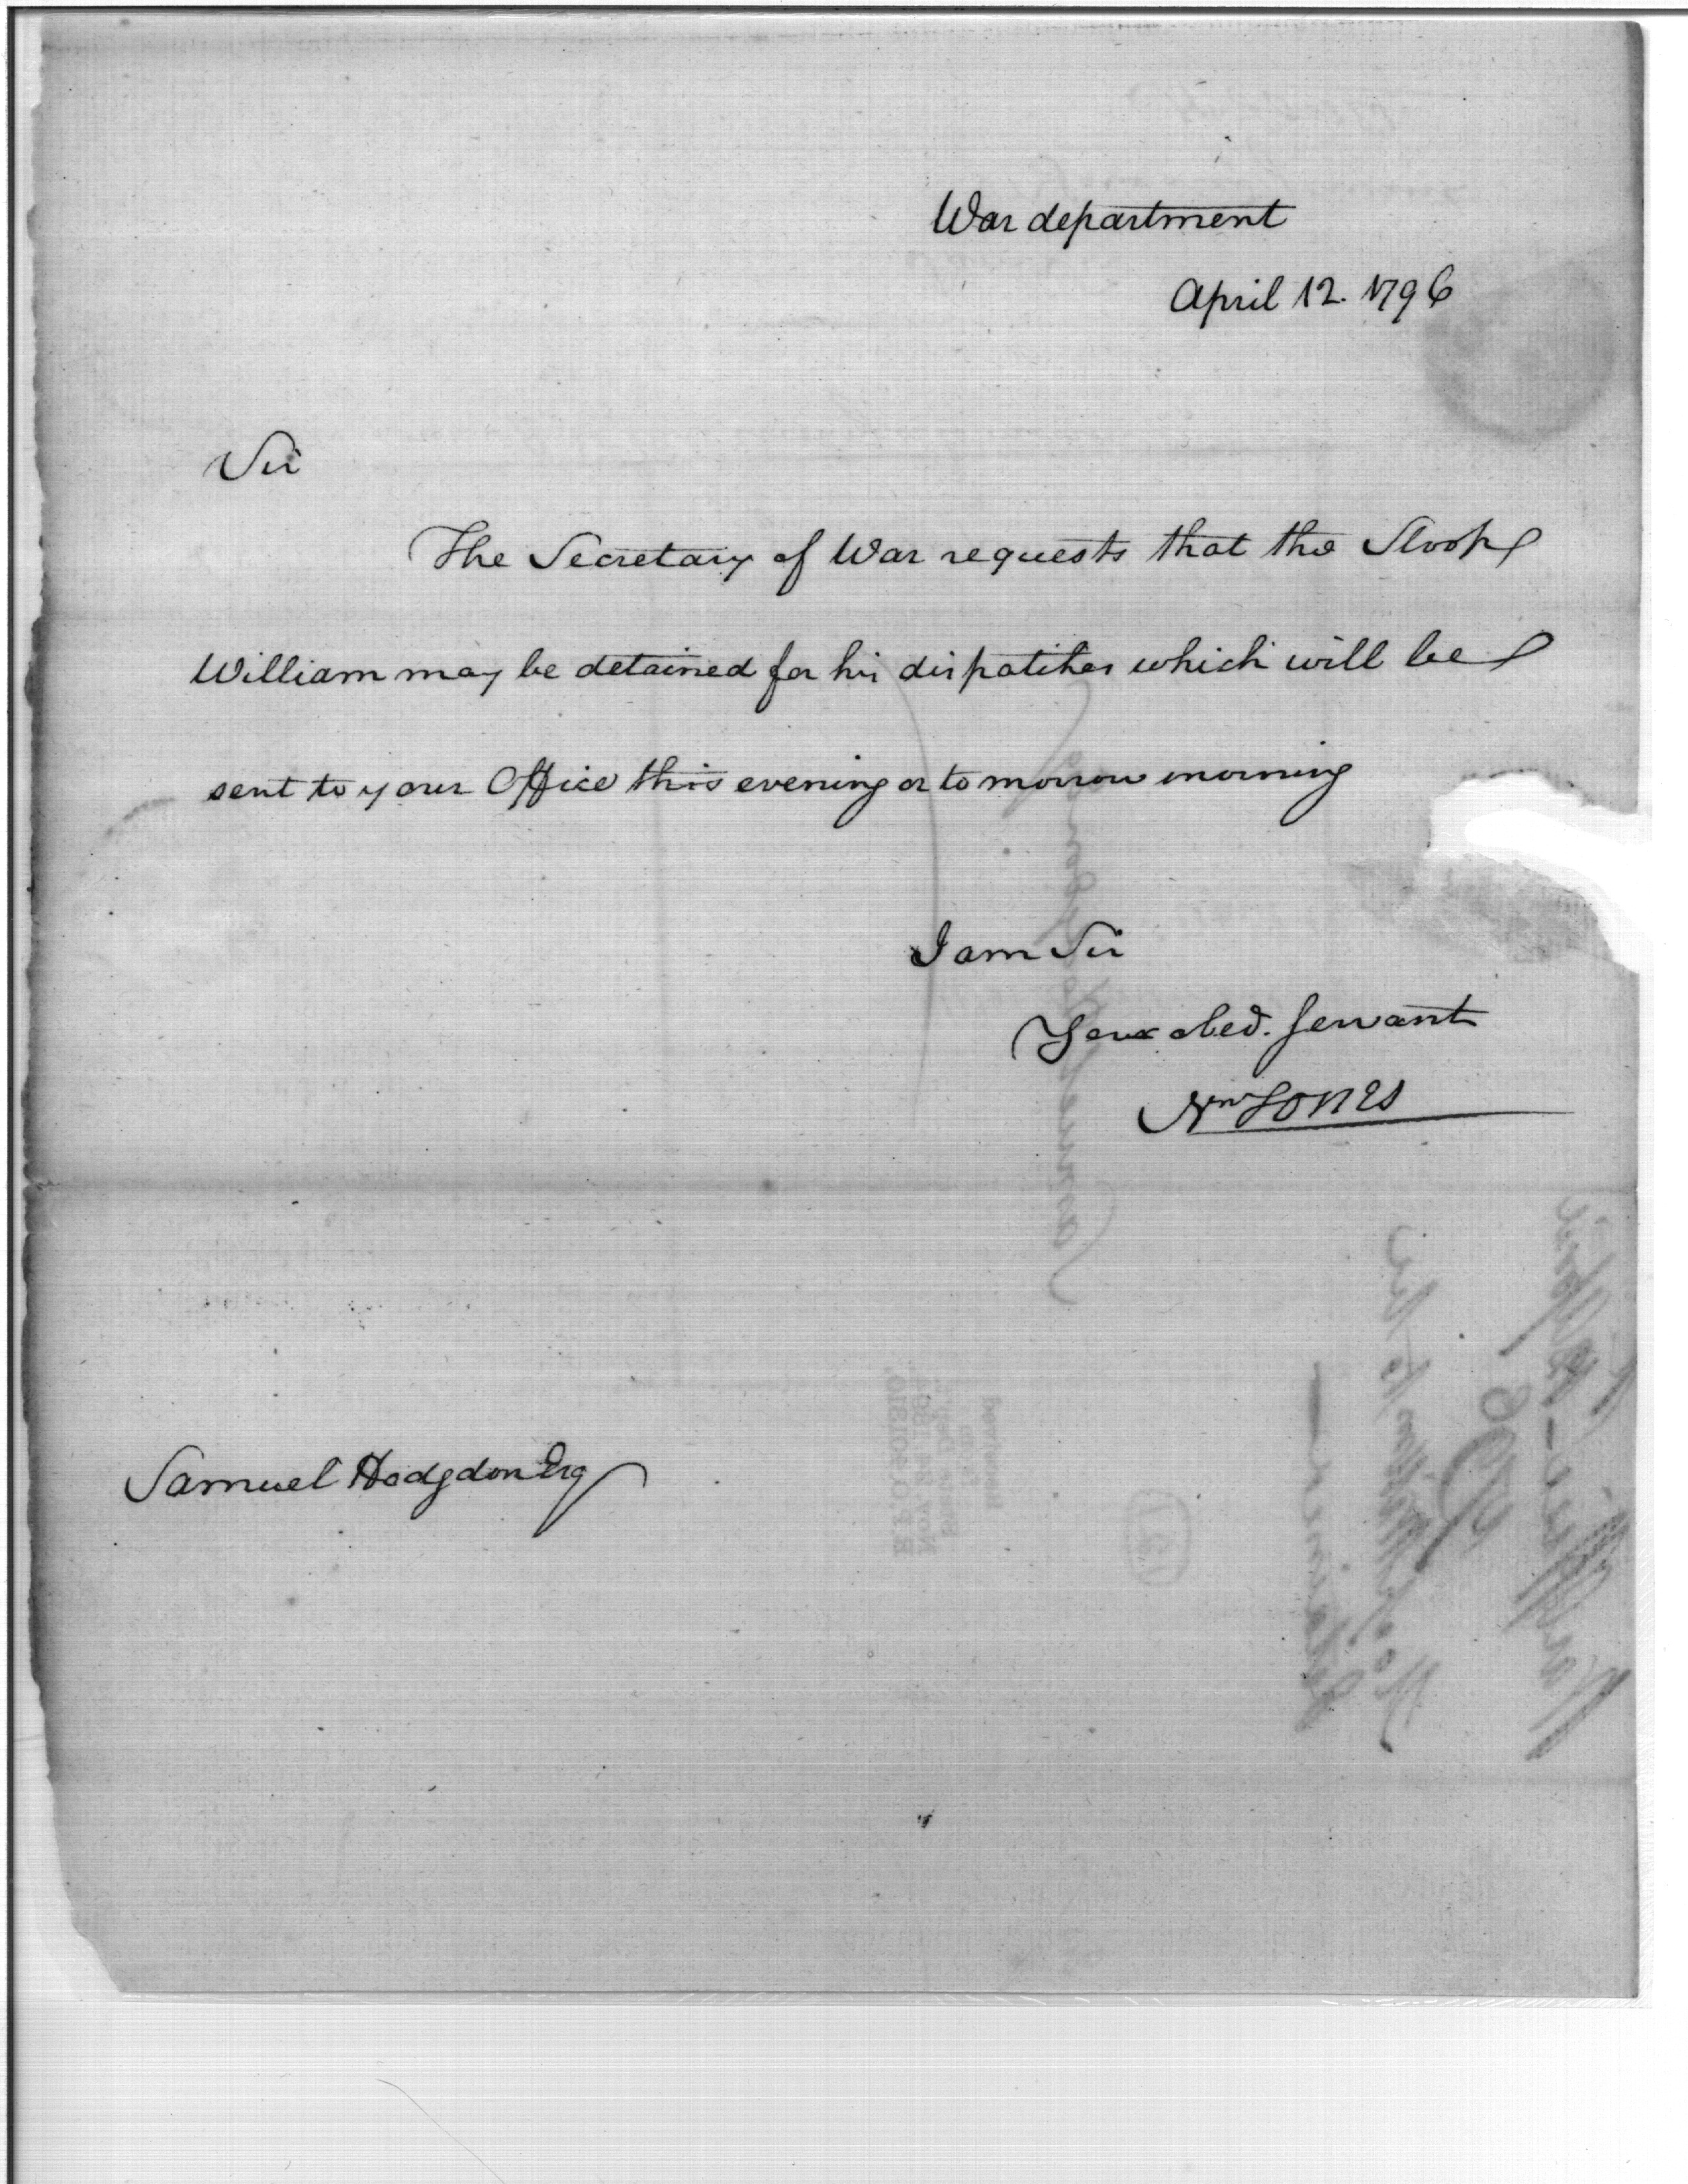 War department
April 12. 1796
Sir
The Secretary of War requests that the Sloop
William may be detained for his dispatches which will be
sent to your Office this evening or to morrow morning
I am Sir
Your obed. servant
Wm Jones
Samuel Hodgdon Esq